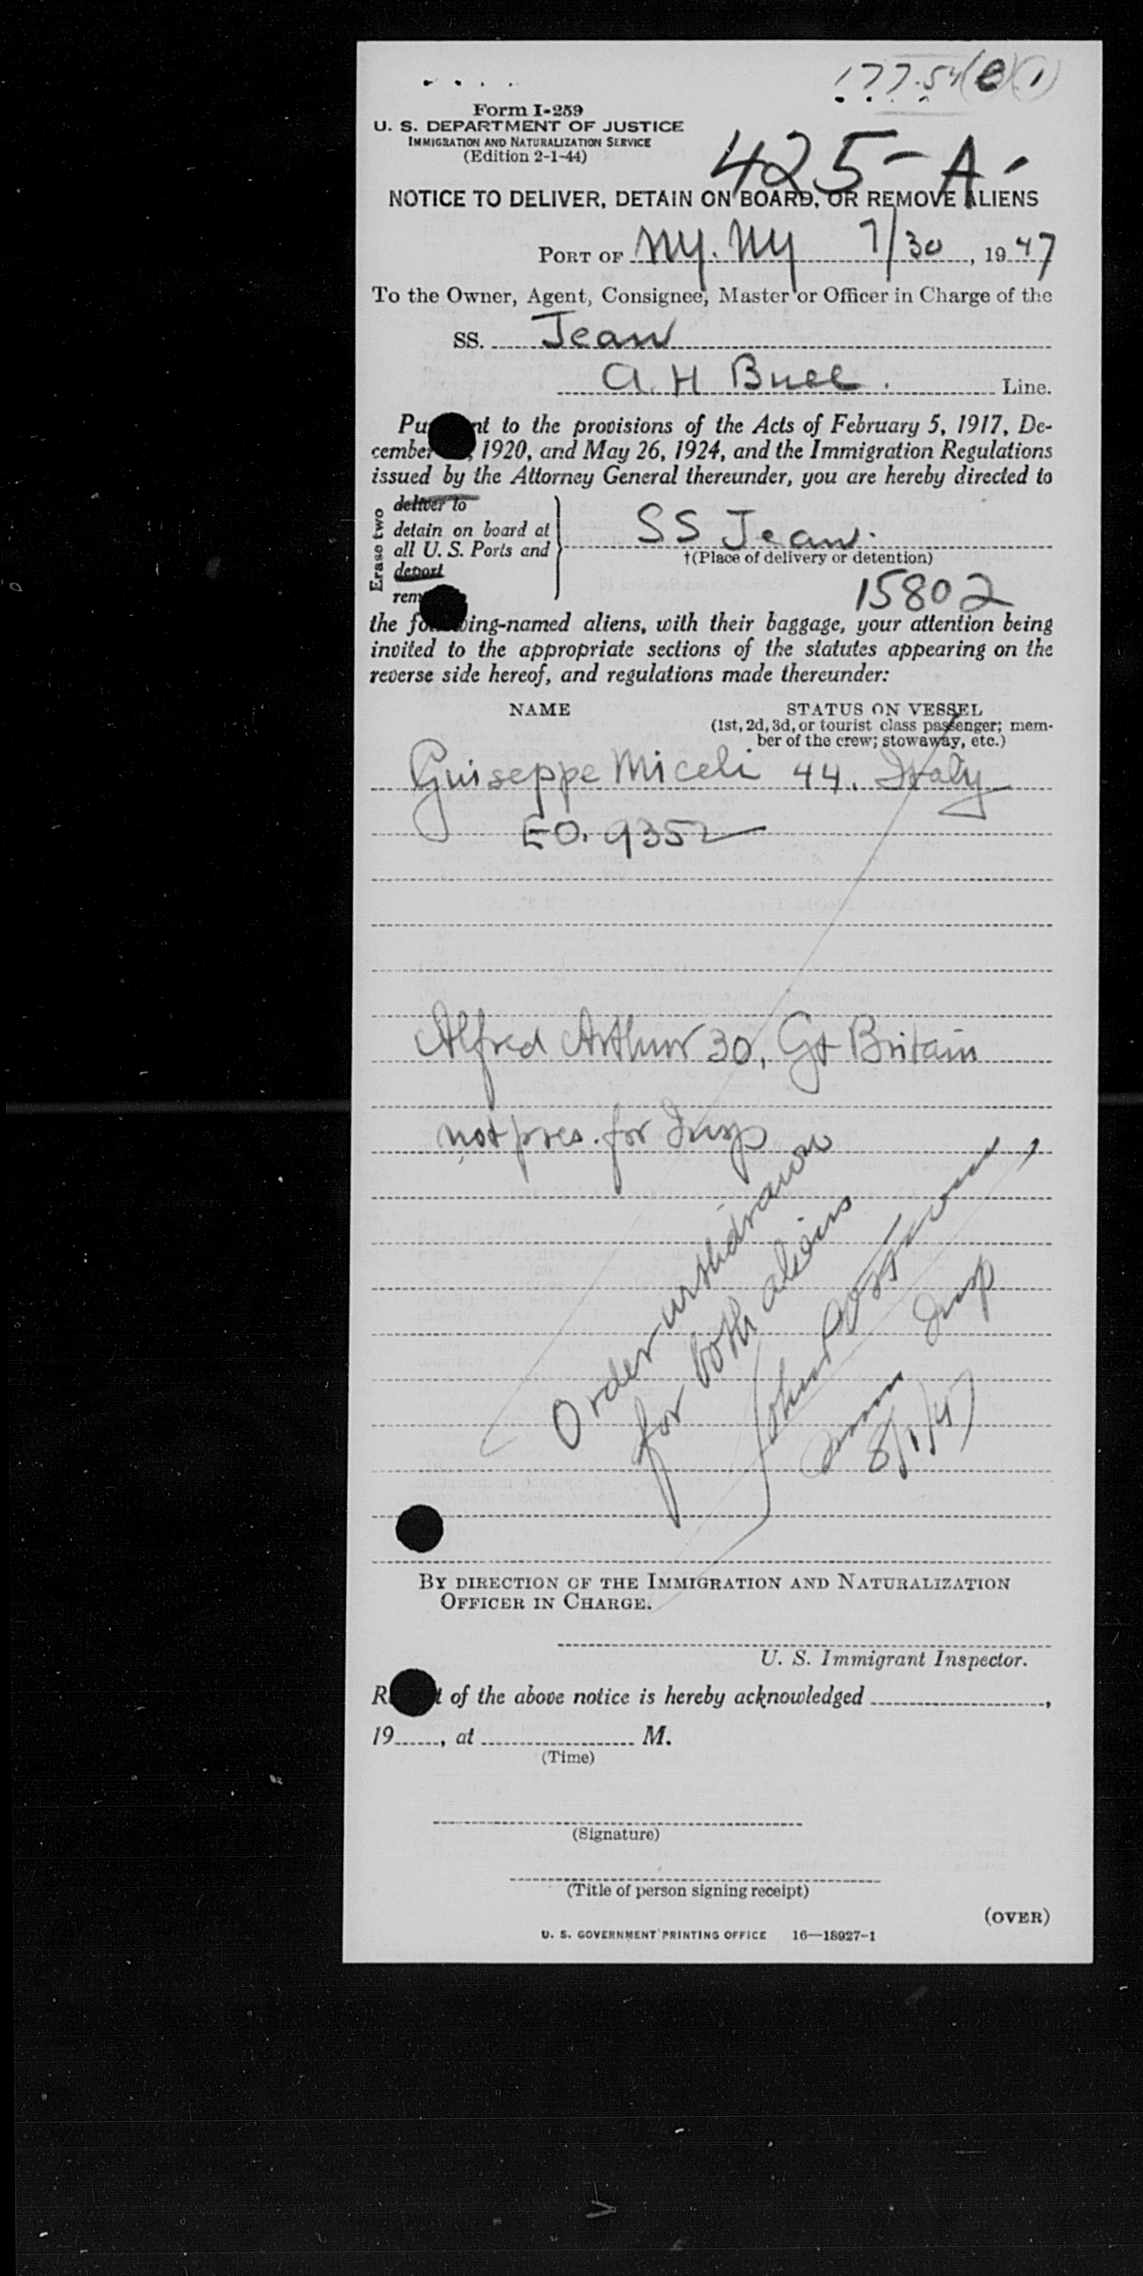 177.54 (e) (1)
Form I-259
U. S. DEPARTMENT OF JUSTICE
IMMIGRATION AND NATURALIZATION SERVICE
(Edition 2-1-44)
425-A-
NOTICE TO DELIVER, DETAIN ON BOARD, OR REMOVE ALIENS
PORT OF NY. NY 7/30, 1947
To the Owner, Agent, Consignee, Master or Officer in Charge of the
SS. Jean
A. H Bull. Line.
Pu nt to the provisions of the Acts of February 5, 1917, De-
cember , 1920, and May 26, 1924, and the Immigration Regulations
issued by the Attorney General thereunder, you are hereby directed to
Erase two
deliver to
detain on board at
all U. S. Ports and
deport
rem
SS Jean.
†(Place of delivery or detention)
15802
the fo ing-named aliens, with their baggage, your attention being
invited to the appropriate sections of the statutes appearing on the
reverse side hereof, and regulations made thereunder:
NAME STATUS ON VESSEL
(1st, 2d, 3d, or tourist class passenger; mem-
ber of the crew; stowaway, etc.)
Guiseppe Miceli 44. Italy
EO. 9352
Alfred Arthur 30, Gt Britain
not pres. for Insp
Order withdrawn
for both aliens
John
Imm Insp
8/1/47
BY DIRECTION OF THE IMMIGRATION AND NATURALIZATION
OFFICER IN CHARGE.
U. S. Immigrant Inspector.
R t of the above notice is hereby acknowledged ,
19 , at M.
(Time)
(Signature)
(Title of person signing receipt)
(OVER)
U. S. GOVERNMENT PRINTING OFFICE 16—18927-1